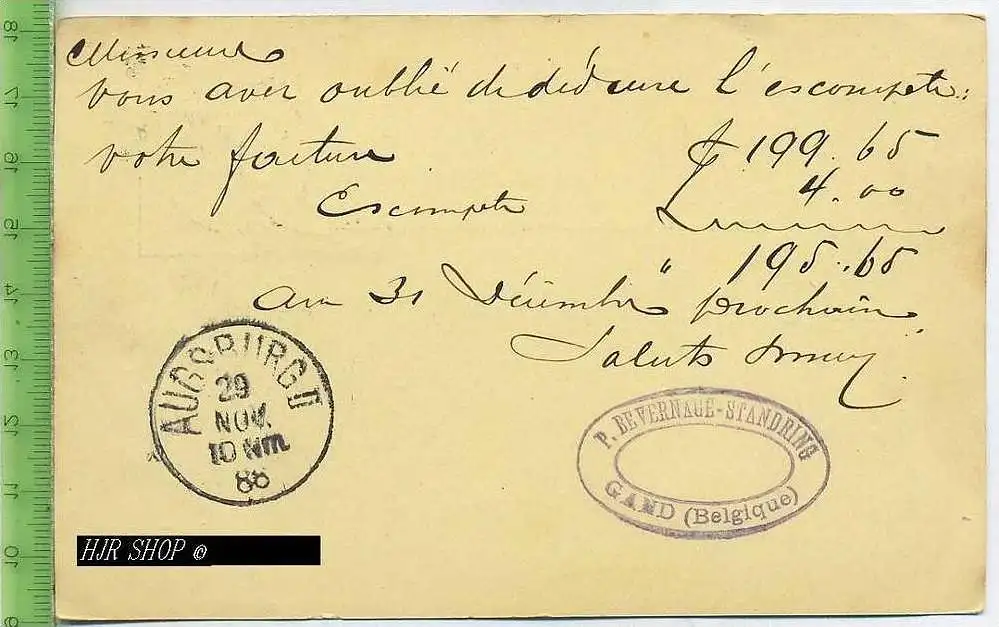 Messieurs
Vous avez oublié de déduire l'escompte:
votre facture ₣ 199.65
Escompte 4.00
195.65
au 31 Décembre prochain
Saluts
AUGSBURG II
29
NOV.
10 Nm.
86
P. BEVERNAGE-STANDRING
GAND (Belgique)
HJR SHOP ©
18
17
16
15
14
13
12
11
10
9